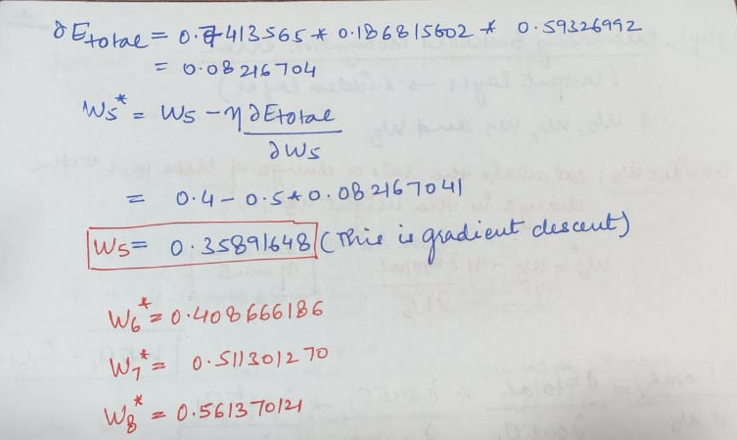 ∂Etotal = 0.7413565 * 0.186815602 * 0.59326992
= 0.08216704
W5* = W5 - η ∂Etotal
∂W5
= 0.4 - 0.5 * 0.082167041
W5 = 0.35891648 (This is gradient descent)
W6* = 0.408666186
W7* = 0.511301270
W8* = 0.561370121